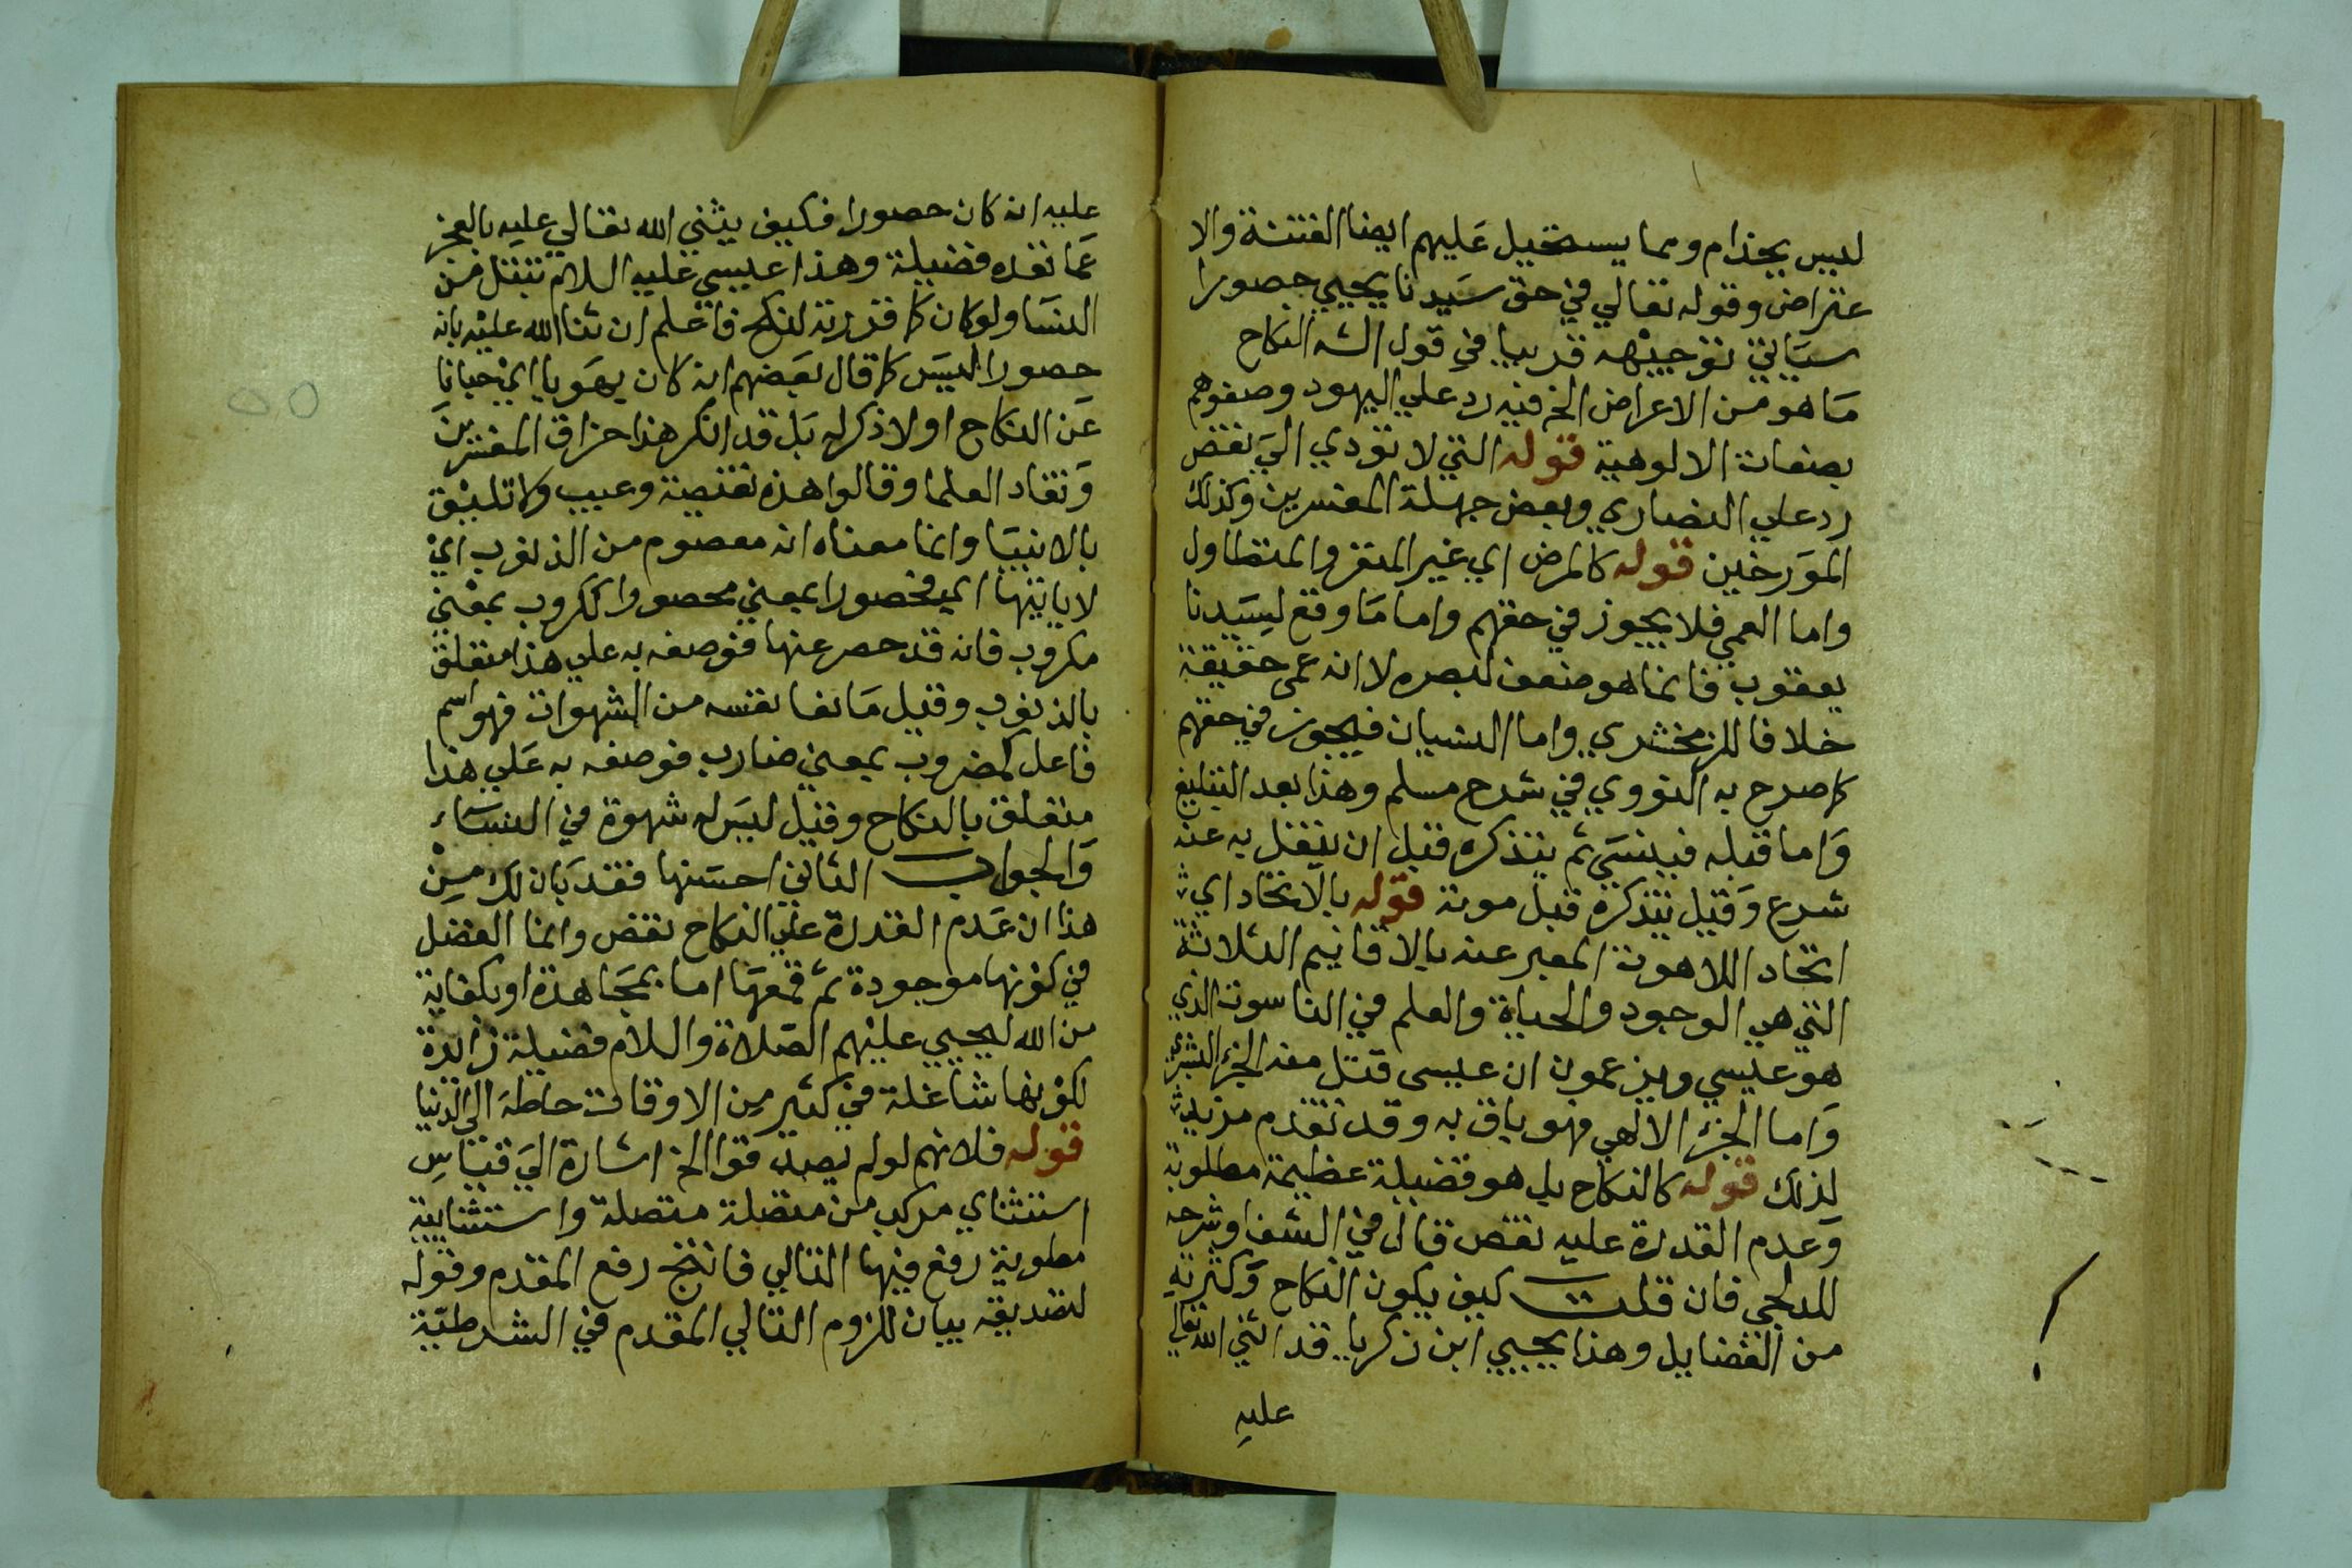 ليس بجذام ومما يستحيل عليهم ايضا الفتنة والا
عتراض وقوله تعالي في حق سيدنا يحيي حصورا
سياتي توجيهه قريبا في قول الشـ النكاح
ما هو من الاعراض الخ فيه رد علي اليهود وصفوهم
بصفات الالوهية قوله التي لا تودي الي نقص
رد علي النصاري وبعض جهلة المفسرين وكذلك
المورخين قوله كالمرض اي غير المنفر والمتطاول
واما العمي فلا يجوز في حقهم واما ما وقع لسيدنا
يعقوب فانما هو ضعف لبصره لا انه عمي حقيقة
خلافا للزمخشري واما النسيان فيجوز في حقهم
كما صرح به النووي في شرح مسلم وهذا بعد التبليغ
واما قبله فينسي ثم يتذكره قبل ان ينقل به عنه
شرع وقيل يتذكره قبل موته قوله بالاتحاد اي
اتحاد اللاهوت المعبر عنه بالاقانيم الثلاثة
التي هي الوجود والحياة والعلم في الناسوت الذي
هو عيسي ويزعمون ان عيسى قتل منه الجزء البشري
واما الجزء الالهي فهو باق به وقد تقدم مزيد
لذلك قوله كالنكاح بل هو فضيلة عظيمة مطلوبة
وعدم القدرة عليه نقص قال في الشفا وشرحه
للدلجي فان قلت كيف يكون النكاح وكثرته
من الفضايل وهذا يحيي ابن زكريا قد اثني الله تعالي
عليه
عليه انه كان حصورا فكيف يثني الله تعالي عليه بالعجز
عما تعده فضيلة وهذا عيسي عليه السلام تبتل من
النسا ولو كان كما قررته لنكح فاعلم ان ثنا الله عليه بانه
حصورا ليس كما قال بعضهم انه كان يهوبا اي جبانا
عن النكاح او لا ذكر له بل قد انكر هذا حذاق المفسرين
ونقاد العلما وقالوا هذه نقيصة وعيب ولا تليق
بالانبيا وانما معناه انه معصوم من الذنوب اي
لا ياتيها اي فحصورا بمعني محصور والكروب بمعني
مكروب فانه قد حصر عنها فوصفه به علي هذا متعلق
بالذنوب وقيل مانعا نفسه من الشهوات فهو اسم
فاعل كضروب بمعني ضارب فوصفه به علي هذا
متعلق بالنكاح وقيل ليس له شهوة في النساء
والجواب الثاني احسنها فقد بان لك من
هذا ان عدم القدرة علي النكاح نقص وانما الفضل
في كونها موجودة ثم قمعها اما بمجاهدة او بكفاية
من الله ليحيي عليهم الصلاة والسلام فضيلة زايدة
لكونها شاغلة في كثير من الاوقات حاطة الي الدنيا
قوله فلانهم لو لم يصدقوا الخ اشارة الي قياس
استثناي مركب من متصلة متصلة واستثنايية
مطوية رفع فيها التالي فانتج رفع المقدم وقوله
لتصديقه بيان للزوم التالي المقدم في الشرطية